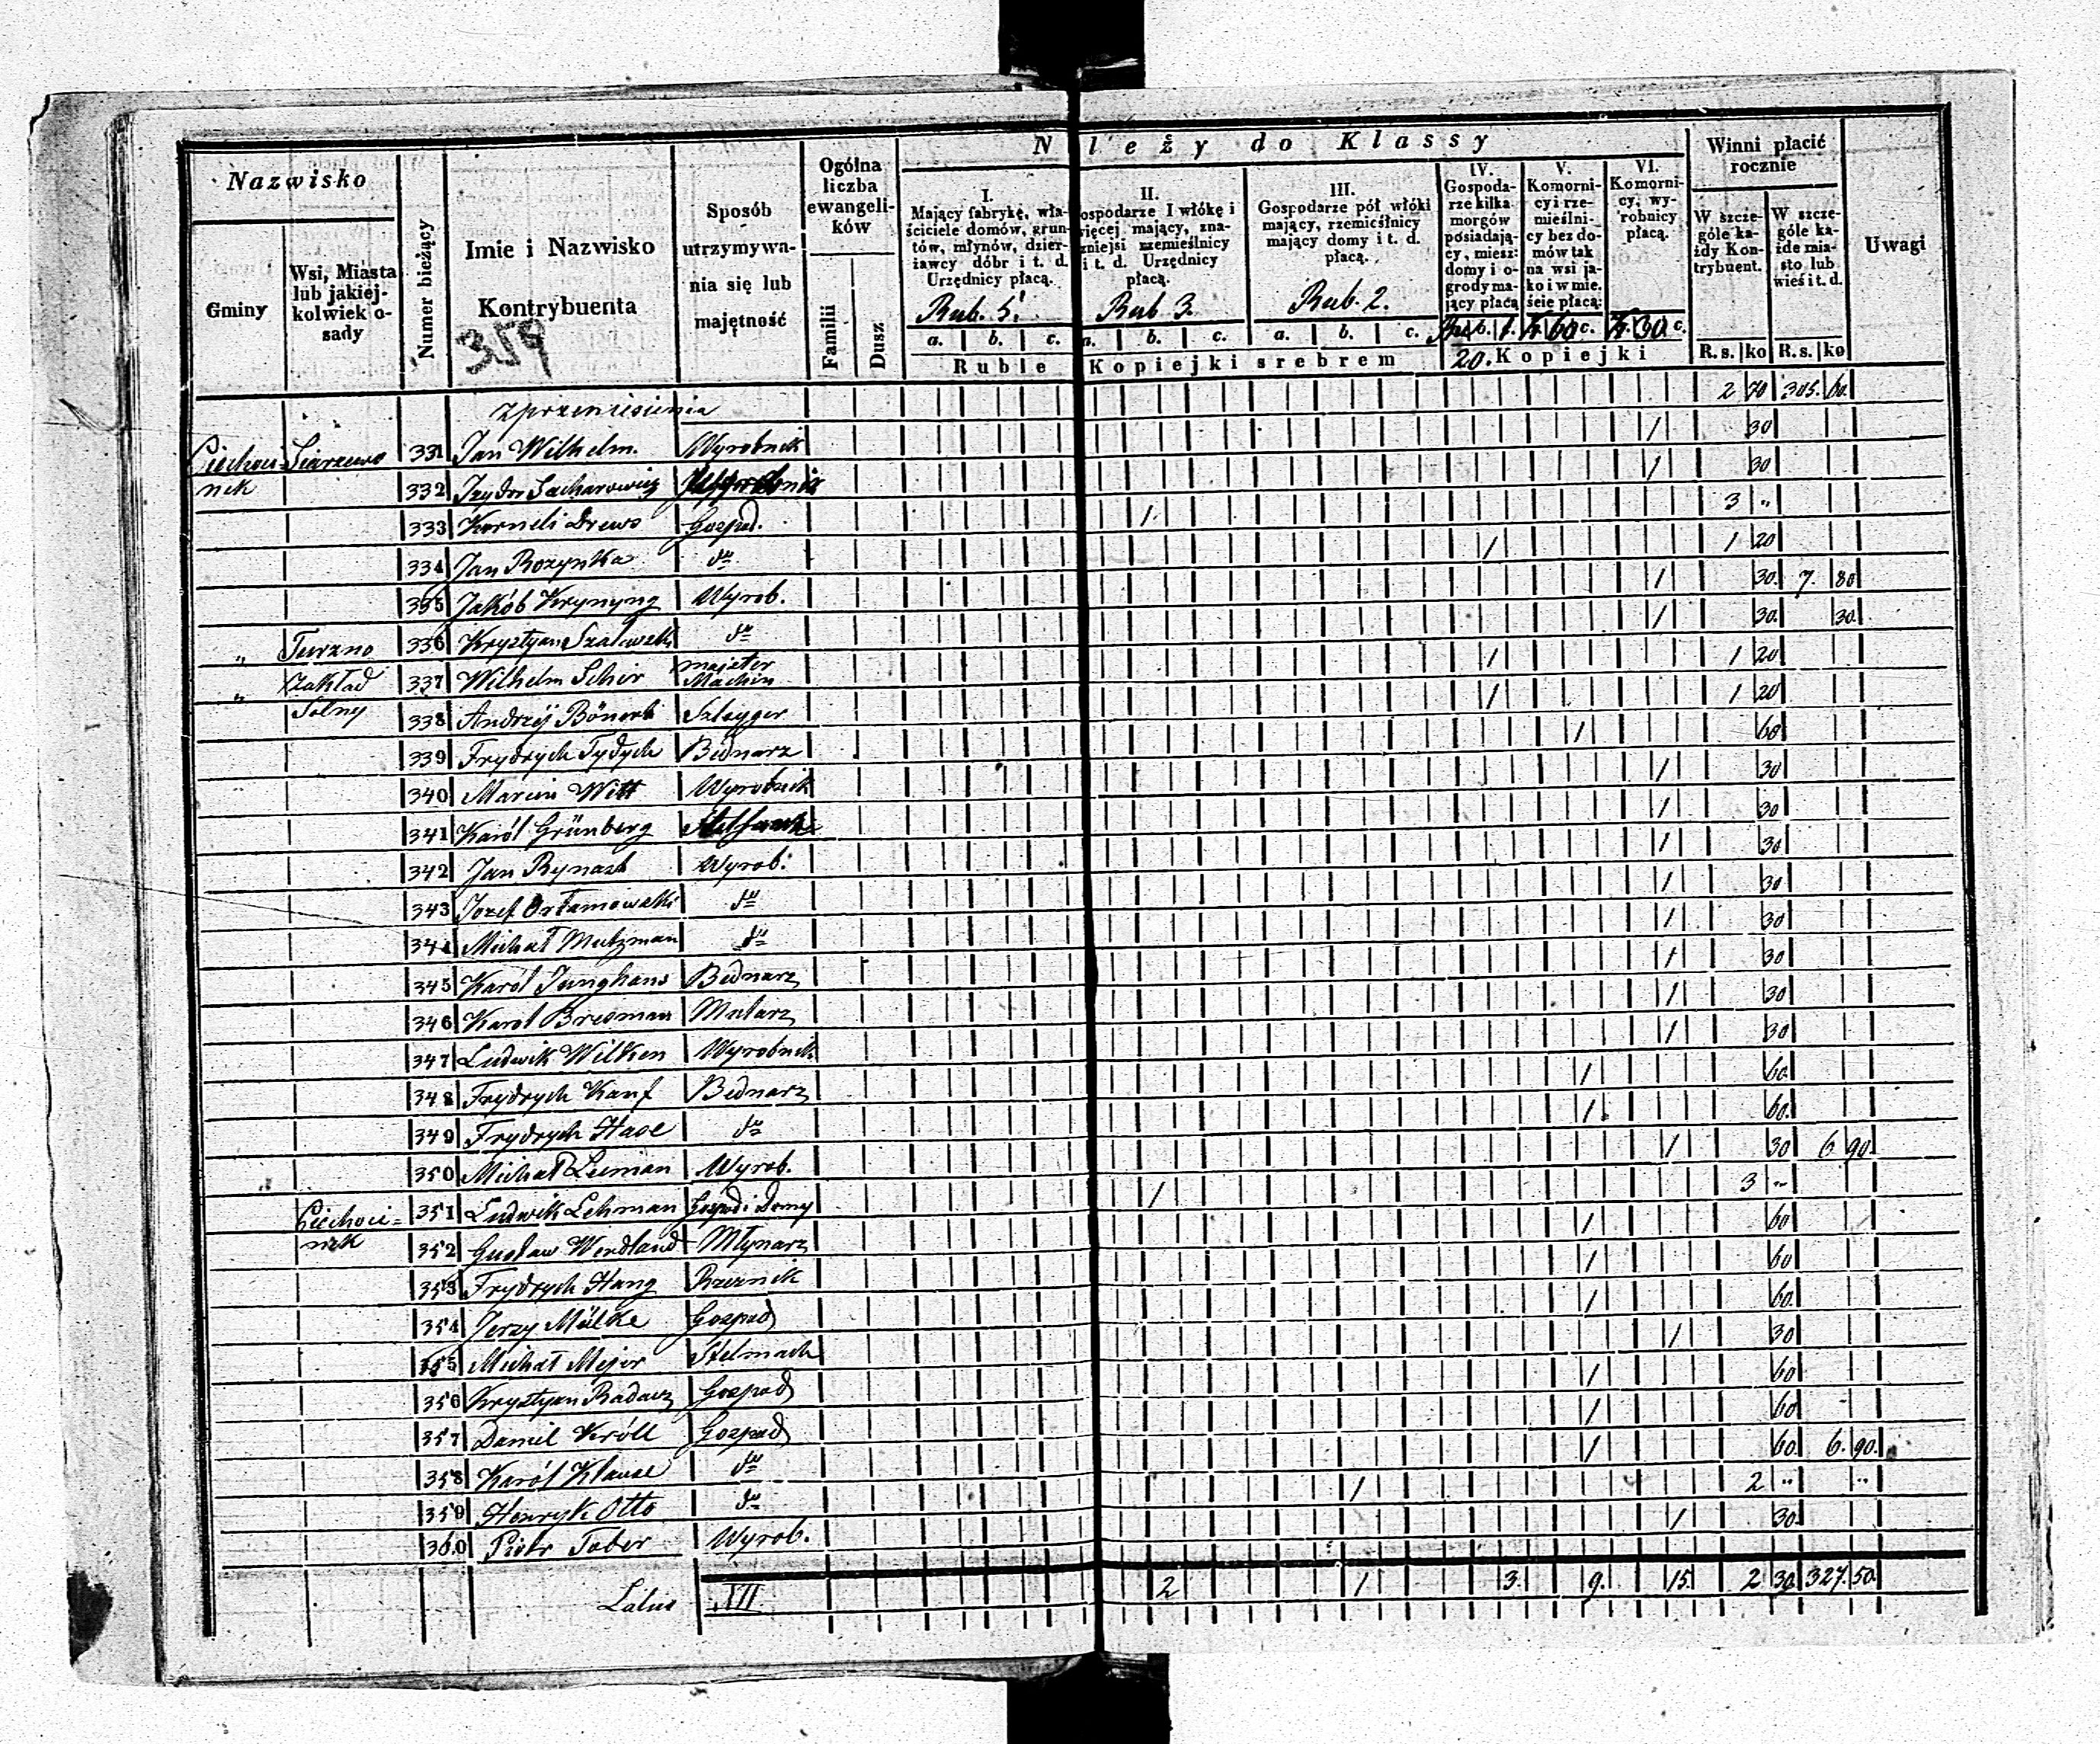 Nazwisko
Gminy
Wsi, Miasta lub jakiej-kolwiek o-sady
Numer bieżący
Imie i Nazwisko Kontrybuenta
359
Sposób utrzymywa-nia się lub majętność
Ogólna liczba ewangeli-ków
Familii
Dusz
N leży do Klassy
I. Mający fabrykę, wła-ściciele domów, grun-tów, młynów, dzier-iawcy dóbr i t. d. Urzędnicy płacą.
Rub. 5.
II. ospodarze I włókę i więcej mający, zna-zniejsi rzemieślnicy i t. d. Urzędnicy płacą.
Rub 3.
III. Gospodarze pół włóki mający, rzemieślnicy mający domy i t. d. płacą.
Rub. 2.
IV. Gospoda-rze kilka morgów posiadają-cy, miesz: domy i o-grody ma-jący płacą
V. Komorni-cy i rze-mieślni-cy bez do-mów tak na wsi ja-ko i w mie. ście płacą:
VI. Komorni-cy, wy-robnicy płacą.
a. b. c. a. b. c. a. b. c.
Ruble Kopiejki srebrem
20. Kopiejki
Winni płacić rocznie
W szcze-góle ka-żdy Kon-trybuent.
W szcze-góle ka-żde mia-sto lub wieś i t. d.
R.s. ko R.s. ko
Uwagi
Z przeniesienia 2 70 305. 60.
Ciechoci- Siarzewo 331 Jan Wilhelm. Wyrobnik 1 30
nek 332 Izydor Sacharowicz 1 30
333 Korneli Drews Gospod. 1. 3 „
334 Jan Rozynka do 1 1 20
335 Jakób Krynyng Wyrob. 1 30. 7. 80
„ Turzno 336 Krystyan Szalewski do 1 30. 30.
„ Zakład 337 Wilhelm Schir majster Machin 1 1 20
Solny 338 Andrzéj Bönert Sztayger 1 1 20
339 Frydrych Tydych Bednarz 1 60
340 Marcin Witt Wyrobnik 1 30
341 Karól Grünberg 1 30
342 Jan Rynast Wyrob. 1 30
343 Jozef Ortamowski do 1 30
344 Michał Mutzman do 1 30
345 Karól Junghans Bednarz 1 30
346 Karol Bresman Mularz 1 30
347 Ludwik Wilken Wyrobnik 1 30
348 Frydrych Kanf Bednarz 1 60
349 Frydrych Hase do 1 60.
350 Michał Leman Wyrob. 1 30 6 90
Ciechoci= 351 Ludwik Lehman Gospod i Domy 1 3 „
nek 352 Gustaw Wendland Młynarz 1 60
353 Frydrych Hang Rzeznik 1 60
354 Jerzy Mülke Gospod 1 60.
355 Michał Mejer Stelmach 1 30
356 Krystyan Radacz Gospod 1 60
357 Daniel Króll Gospod 1 60
358 Karól Klause do 1 60. 6. 90.
359 Henryk Otto do 1 2 „ „
360 Piotr Tober Wyrob. 1 30
Latus XII. 2 1 3 9. 15. 2 30 327. 50